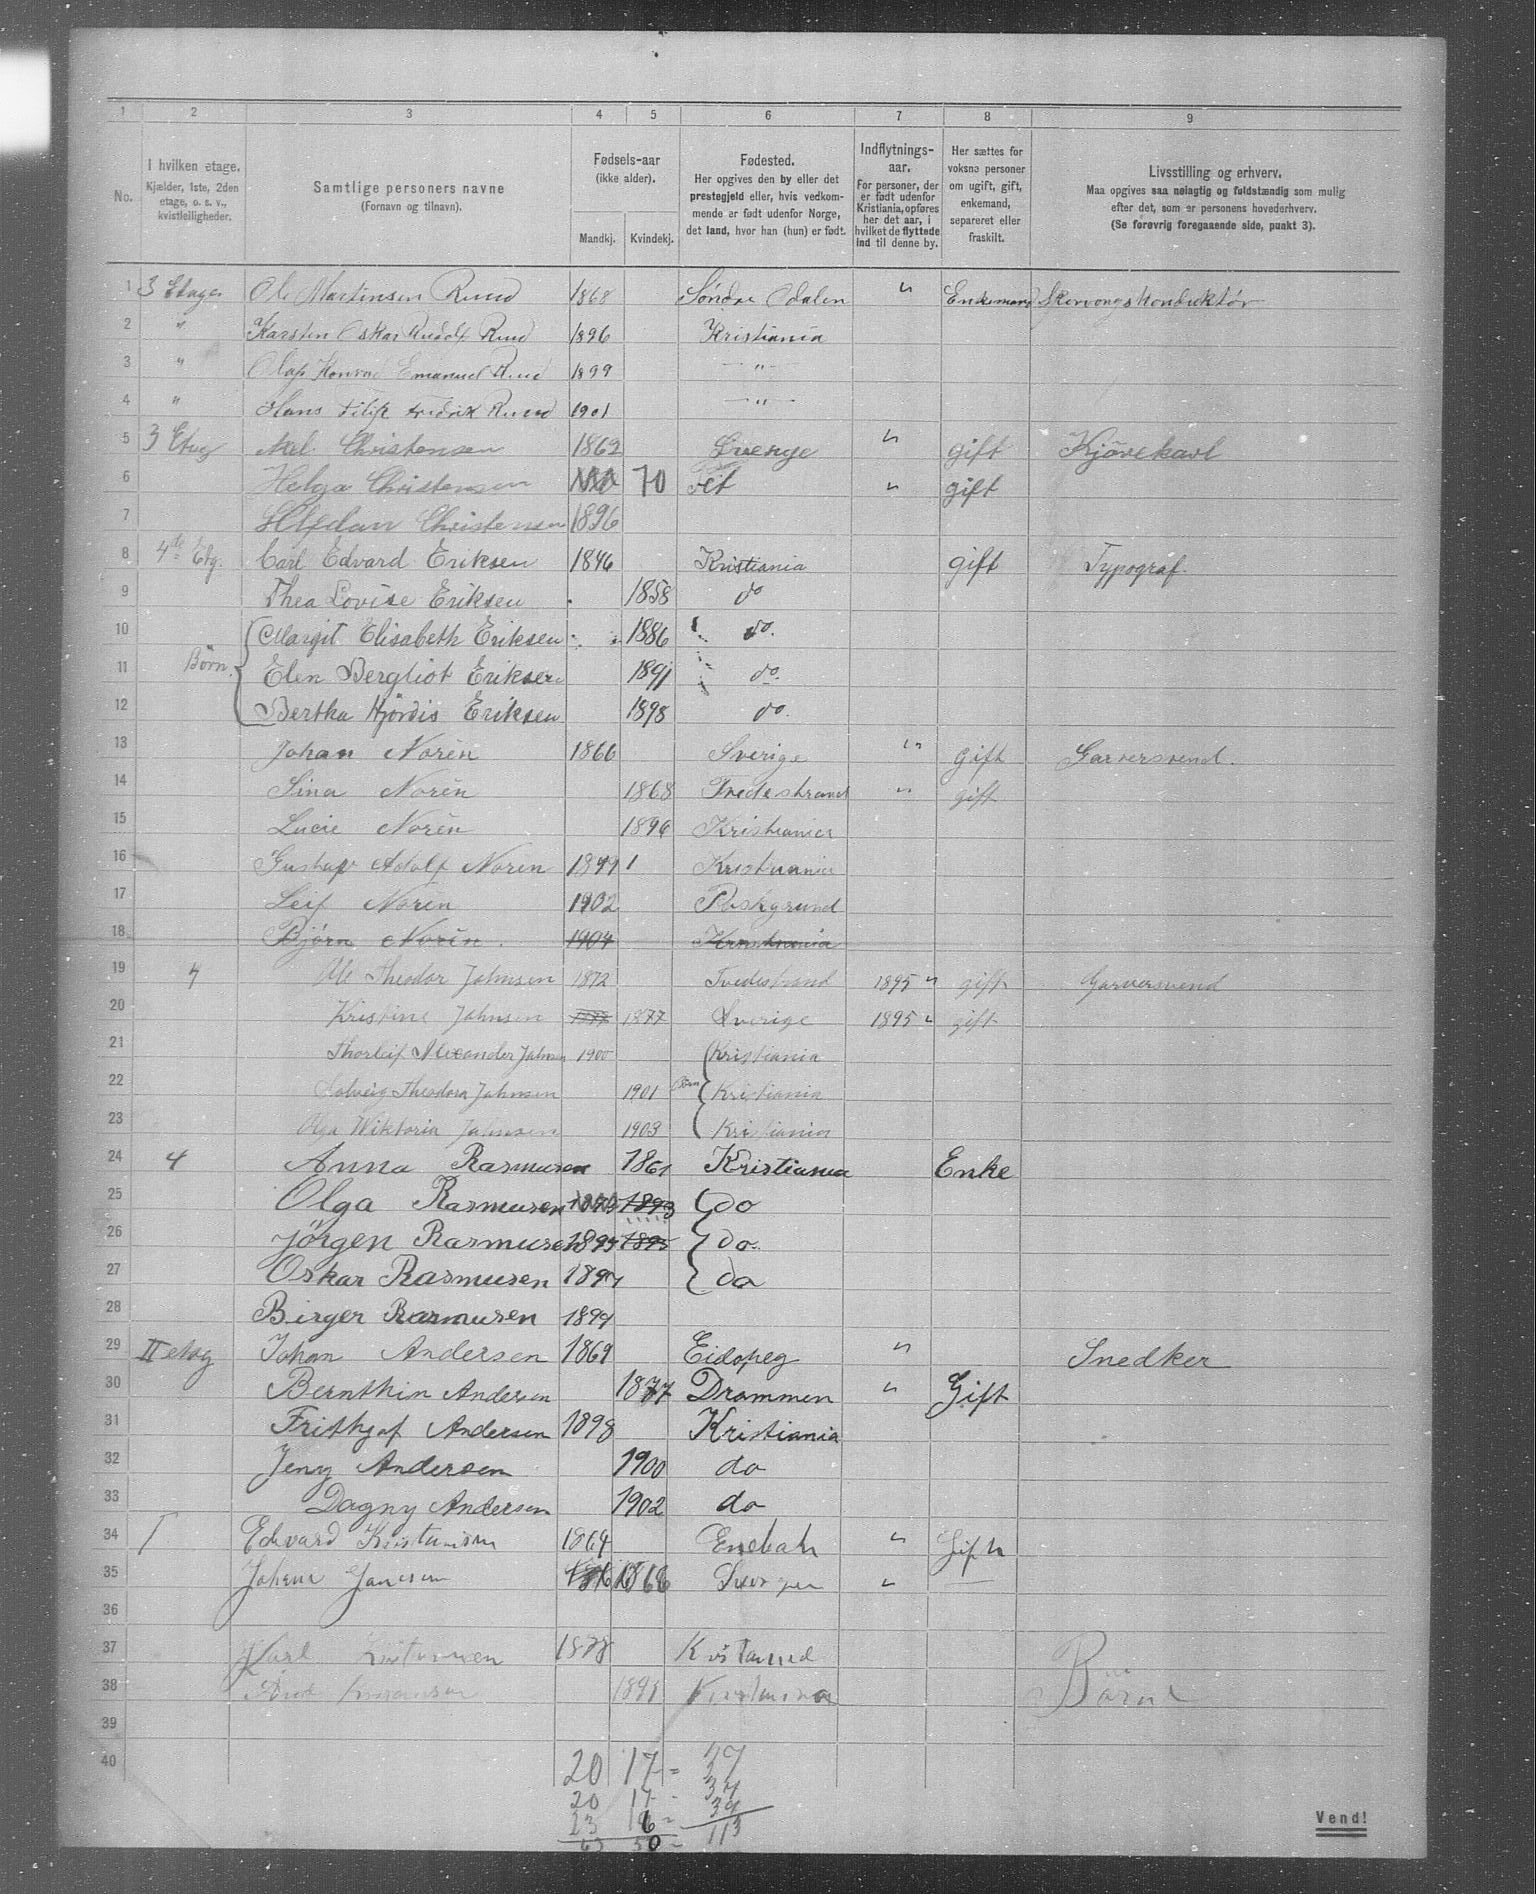 1 2 3 4 5 6 7 8 9
No.
I hvilken etage.
Kjælder, 1ste, 2den etage, o. s. v., kvistleiligheder.
Samtlige personers navne
(Fornavn og tilnavn).
Fødsels-aar
(ikke alder).
Mandkj. Kvindekj.
Fødested.
Her opgives den by eller det prestegjeld eller, hvis vedkommende er født udenfor Norge, det land, hvor han (hun) er født.
Indflytnings-aar.
For personer, der er født udenfor Kristiania, opføres her det aar, i hvilket de flyttede ind til denne by.
Her sættes for voksne personer om ugift, gift, enkemand, separeret eller fraskilt.
Livsstilling og erhverv.
Maa opgives saa nøiagtig og fuldstændig som mulig efter det, som er personens hovederhverv.
(Se forøvrig foregaaende side, punkt 3).
1 3 Etage Ole Martinsen Ruud 1868 Söndre Odalen " Enkemand Sporvongskonduktör
2 " Karsten Oskar Rudolf Ruud 1896 Kristiania
3 " Olaf Konrad Emanuel Ruud 1899 "
4 " Hans Filip Fredrik Ruud 1901 "
5 3 Etag Axel Christensen 1862 Sverige " gift Kjörekarl
6 Helga Christensen 70 " gift
7 Halfdan Christensen 1896
8 4de Etg. Carl Edvard Eriksen 1846 Kristiania gift Typograf
9 Thea Lovise Eriksen 1858 do
10 Margit Elisabeth Eriksen 1886 do.
11 Börn Elen Bergliot Eriksen 1891 do.
12 Bertha Hjördis Eriksen 1898 do.
13 Johan Norén 1866 Sverige " gift Garversvend.
14 Sina Norén 1868 Tvedestrand " gift
15 Lucie Norén 1896 Kristiania
16 Gustav Adolf Norén 1899 1 Kristiania
17 Leif Norén 1902 Porsgrund
18 Bjørn Norén. 1904 Kristiania
19 4 Ole Theodor Johnsen 1872 Tvedestrand 1895 " gift Garversvend
20 Kristine Johnsen 1877 1877 Sverige 1895 " gift
21 Thorleif Alexander Johnsen 1900 Kristiania
22 Solveig Theodora Johnsen 1901 Börn Kristiania
23 Olga Wiktoria Johnsen 1903 Kristiania
24 4 Anna Rasmusen 1861 Kristiania Enke
25 Olga Rasmusen 1893 1893 do
26 Jörgen Rasmusen 1895 1895 do.
27 Oskar Rasmusen 1897 do
28 Birger Rasmusen 1899
29 II etag Johan Andersen 1869 Eidspeg " Snedker
30 Bernthin Andersen 1877 Drammen " Gift
31 Frithjof Andersen 1898 Kristiania
32 Jeny Andersen 1900 do
33 Dagny Andersen 1902 do
34 Edvard Kristiansen 1864 Enebak " Gift
35 1868 "
36
37 Karl 1878
38 1891 Kristiania Börn
39
40
20 17 =
20 17 - 37
23 16 = 39
63 50 - 113
Vend!